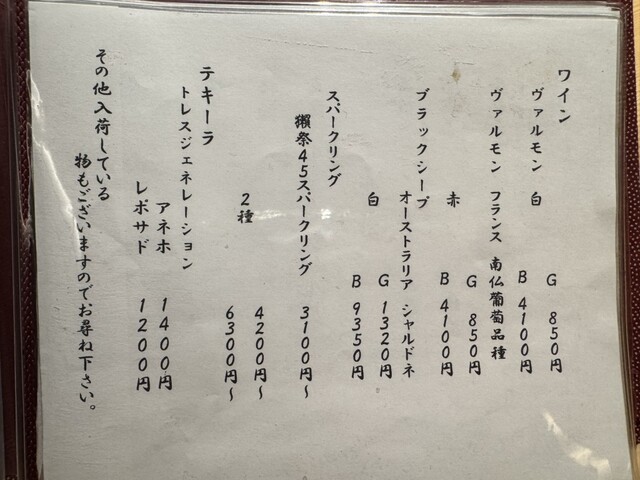 ワイン
ヴァルモン 白
G 850円
B 4100円
ヴァルモン フランス 南仏葡萄品種
赤
G 850円
B 4100円
ブラックシープ
オーストラリア シャルドネ
白
G 1320円
B 9350円
スパークリング
獺祭45スパークリング 3100円~
2種
4200円~
6300円~
テキーラ
トレスジェネレーション
アネホ 1400円
レポサド 1200円
その他入荷している
物もございますのでお尋ね下さい。